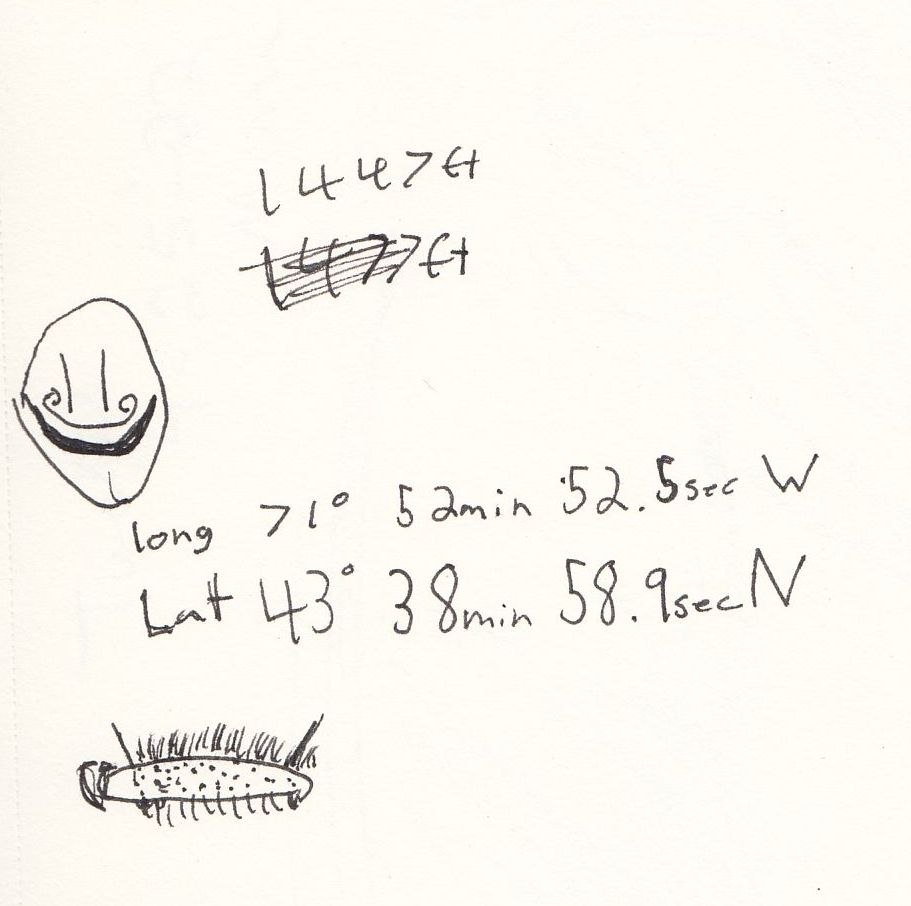 1447 ft
1477 ft
long 71° 52min 52.5sec W
Lat 43° 38min 58.9sec N